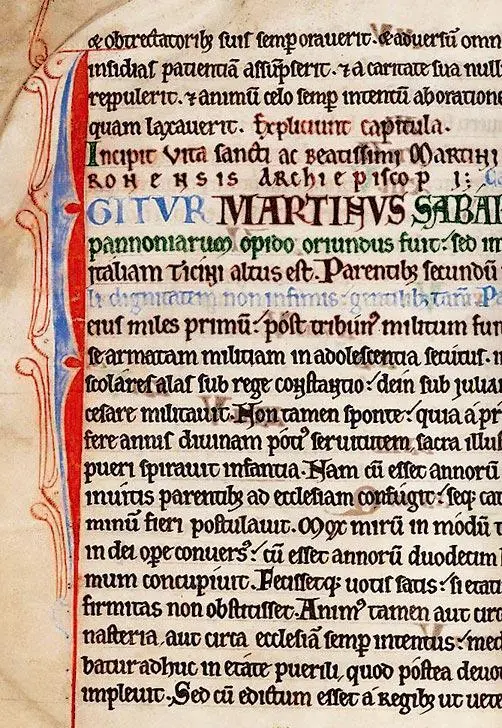 & obtrectatoribꝫ suis semp orauerit. & aduersū omn
insidias patientiā assūpserit. ⁊ a caritate sua null
reppulerit. ⁊ animū celo semp intentū ab oratione
quam laxauerit. Expliciunt capitula.
Incipit vita sancti ac beatissimi Martini
ronensis archiepiscopi:
GITVR MARTINVS SABAR
pannoniarum opido oriundus fuit: sed in
italiam ticini altus est. Parentibꝫ secundū
li dignitatem non infimis: gentilibꝫ tam̄. Pa
eius miles primū: post tribunꝰ militum fu
se armatam militiam in adolescentia secutus.
scolares alas sub rege constantio: dein sub iulia
cesare militauit. Non tamen sponte: quia a pr
fere annis diuinam potiꝰ seruitutem, sacra illus
pueri spirauit infantia. Nam cū esset annorū
inuitis parentibꝫ ad ecclesiam confugit: seqꝫ cat
minū fieri postulauit. Mox mirū in modū t
in dei ope conuersꝰ: cū esset annorū duodecim
mum concupiuit. Fecissetqꝫ uotis satis: si etati
firmitas non obstitisset. Animꝰ tamen aut circ
nasteria, aut circa ecclesiā semp intentus: med
batur adhuc in etate puerili, quod postea deuot
impleuit. Sed cū edictum esset a regibꝫ ut uete